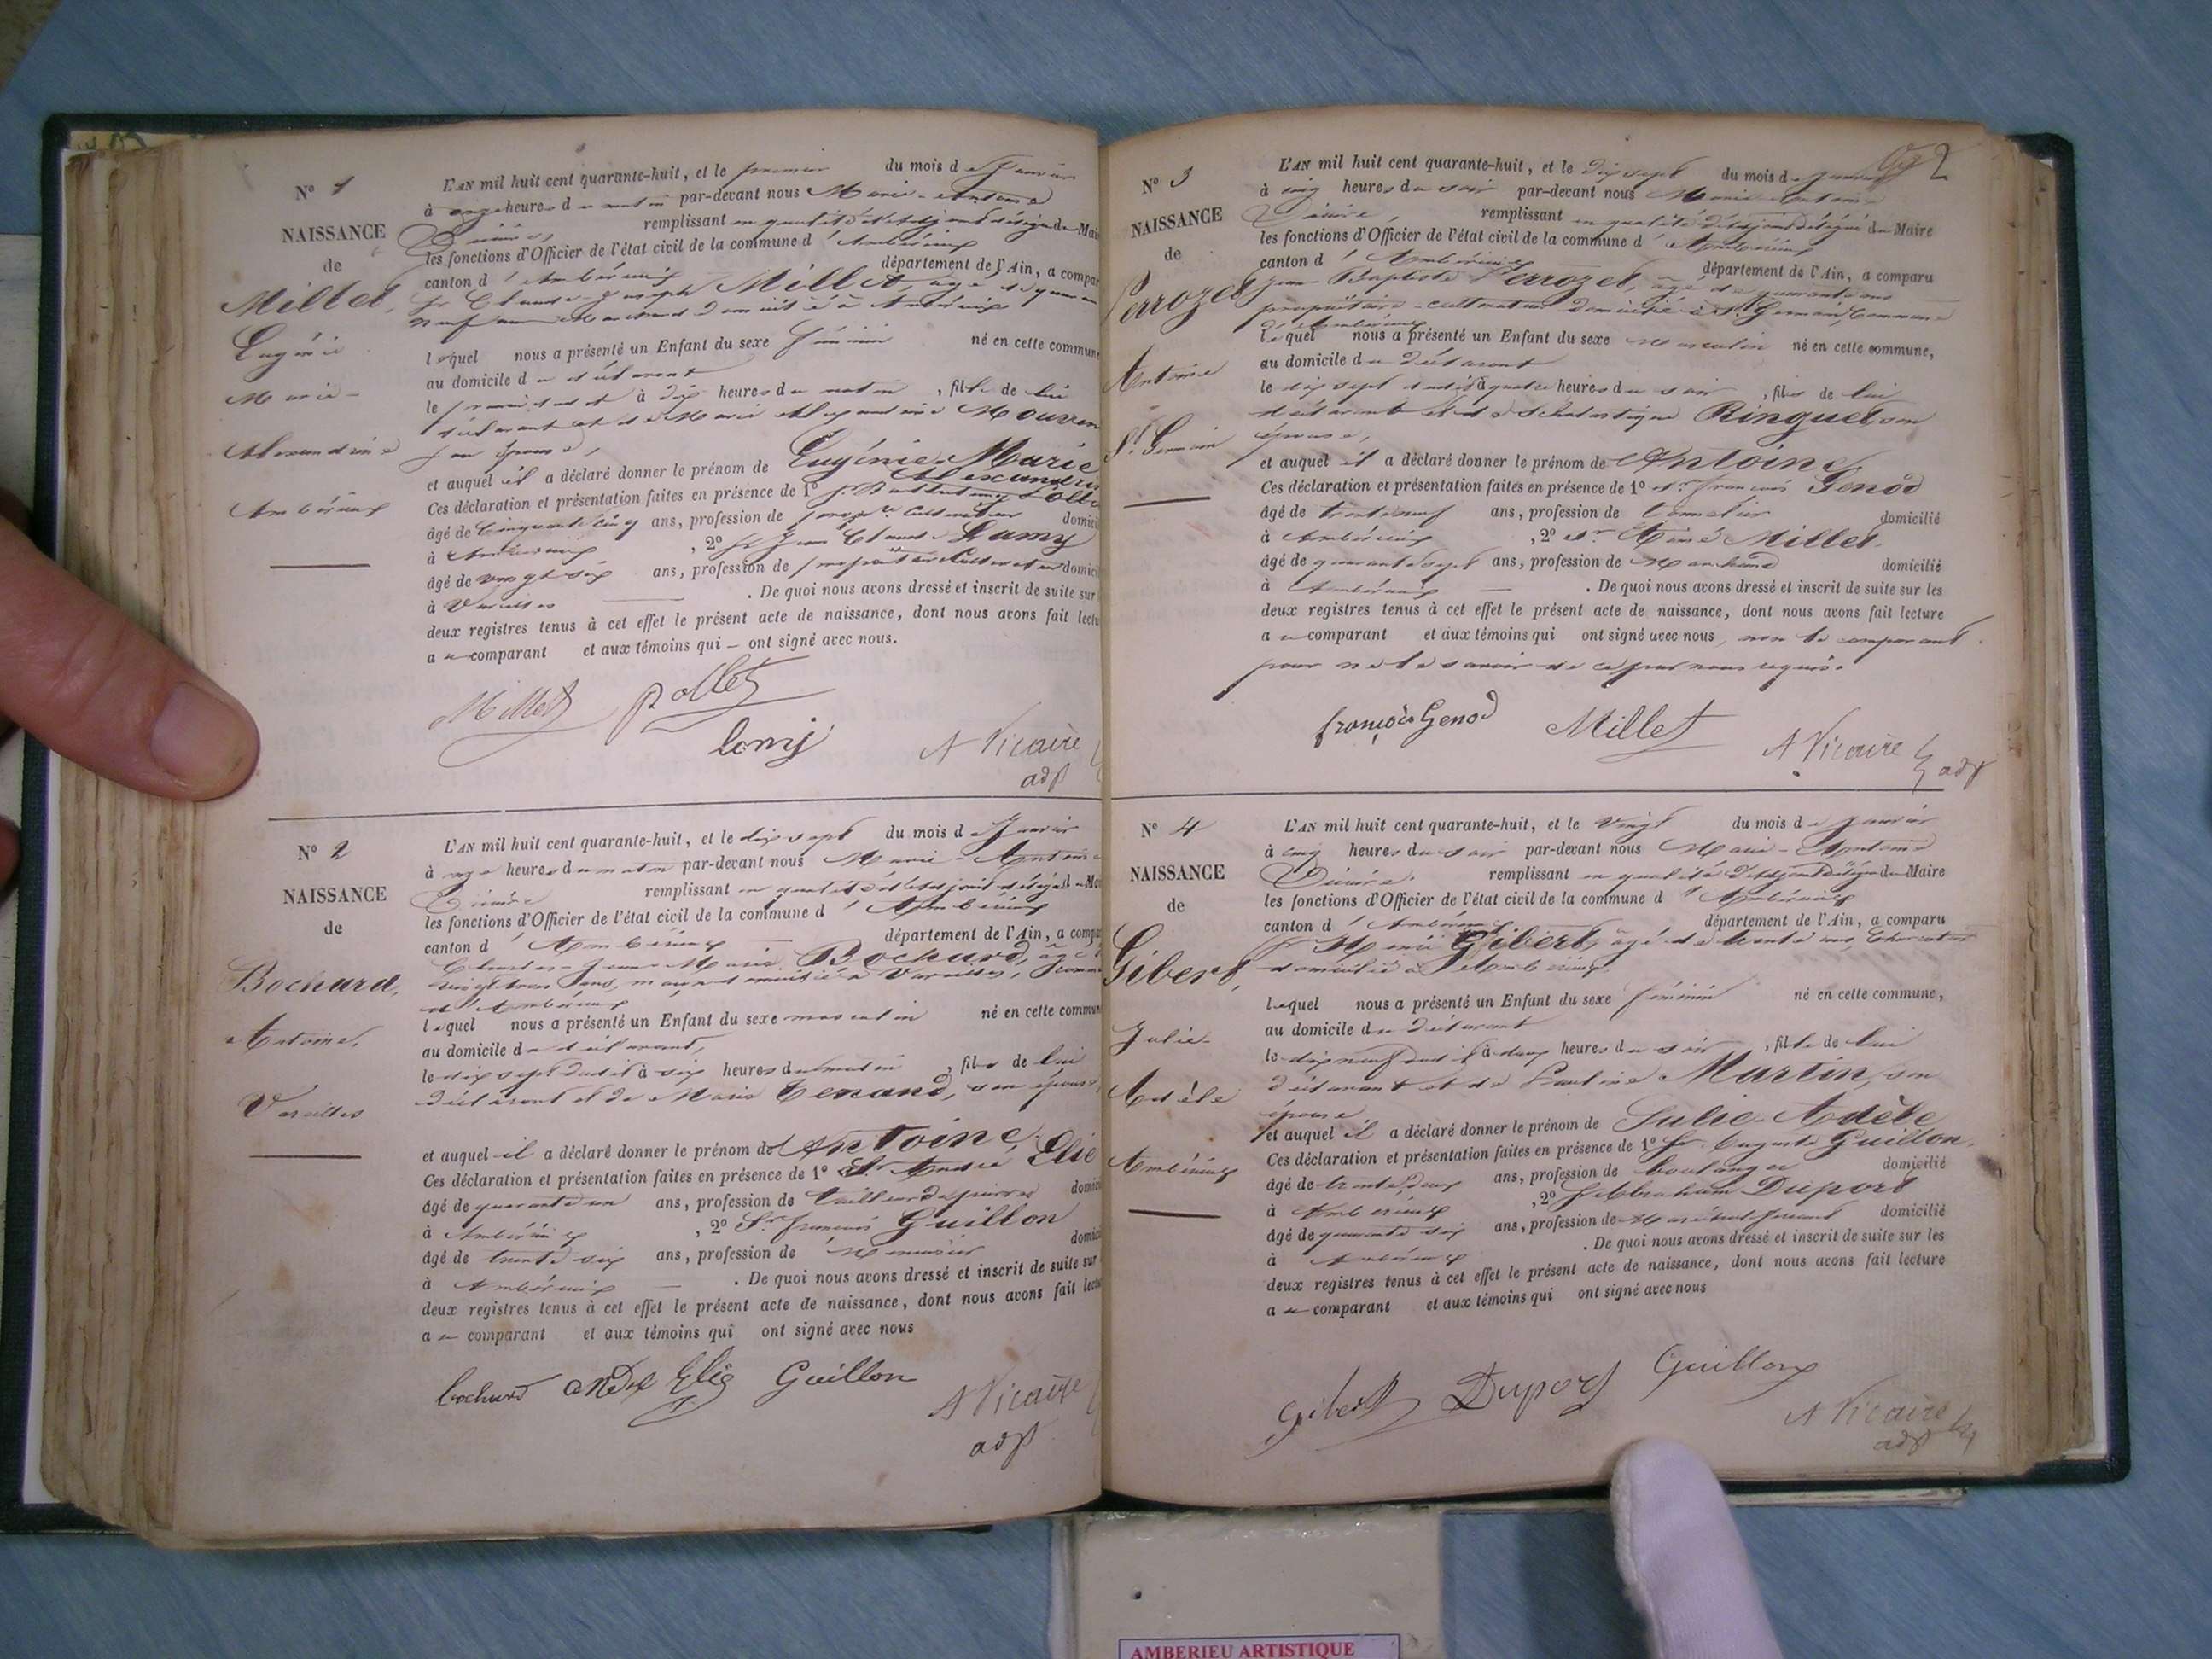 N° 1
NAISSANCE
de
Millet,
Eugénie
Marie-
Alexandrine
Ambérieux
L'AN mil huit cent quarante-huit, et le premier du mois de Janvier
à onze heures du matin par-devant nous Marie-Antoine
remplissant en qualité d'adjoint délégué du Mai
les fonctions d'Officier de l'état civil de la commune d'Ambérieux
canton d'Ambérieux département de l'Ain, a compar
Sr Claude-Joseph Millet âgé de quarante
neuf ans Marchand domicilié à Ambérieux
lequel nous a présenté un Enfant du sexe féminin né en cette commune
au domicile du déclarant
le premier dudit à dix heures du matin, fille de lui
déclarant et de Marie Alexandrine
son épouse,
et auquel il a déclaré donner le prénom de Eugénie Marie
Alexandrine
Ces déclaration et présentation faites en présence de 1°
âgé de cinquante cinq ans, profession de cultivateur domici
à Ambérieux, 2° Sr Jean Claude Lamy
âgé de vingt six ans, profession de propriétaire cultivateur domici
à Vareilles . De quoi nous avons dressé et inscrit de suite sur
deux registres tenus à cet effet le présent acte de naissance, dont nous avons fait lectu
au comparant et aux témoins qui — ont signé avec nous.
Millet Pollet
lamy A Vicaire
adjt
N° 2
NAISSANCE
de
Bochard,
Antoine,
Vareilles
L'AN mil huit cent quarante-huit, et le dix sept du mois de Janvier
à onze heures du matin par-devant nous Marie-Antoine
remplissant en qualité d'adjoint délégué du Mai
les fonctions d'Officier de l'état civil de la commune d'Ambérieux
canton d'Ambérieux département de l'Ain, a compa
Jean Marie Bochard, âgé
vingt trois ans, domicilié à Vareilles, Commune
d'Ambérieux
lequel nous a présenté un Enfant du sexe masculin né en cette commun
au domicile du déclarant,
le dix sept dudit à six heures du matin, fils de lui
déclarant et de Marie Tenand, son épouse
et auquel il a déclaré donner le prénom de Antoine,
Ces déclaration et présentation faites en présence de 1° Sr André Elie
âgé de quarante un ans, profession de tailleur de pierres domici
à Ambérieux, 2° Sr françois Guillon
âgé de trente six ans, profession de Menuisier domici
à Ambérieux — . De quoi nous avons dressé et inscrit de suite sur
deux registres tenus à cet effet le présent acte de naissance, dont nous avons fait lectu
au comparant et aux témoins qui ont signé avec nous
bochard andre Elie Guillon
A Vicaire
adjt
2
N° 3
NAISSANCE
de
Perrozet
Antoine
St Germain
L'AN mil huit cent quarante-huit, et le dix sept du mois de Janvier
à cinq heures du soir par-devant nous Marie-Antoine
Vicaire, remplissant en qualité d'adjoint délégué du Maire
les fonctions d'Officier de l'état civil de la commune d'Ambérieux
canton d'Ambérieux département de l'Ain, a comparu
Jean-Baptiste Perrozet, âgé de quarante ans
propriétaire-cultivateur domicilié à St Germain, Commune
d'Ambérieux
lequel nous a présenté un Enfant du sexe masculin né en cette commune,
au domicile du déclarant
le dix sept dudit à quatre heures du soir, fils de lui
déclarant et de Scholastique Ringuet, son
épouse,
et auquel il a déclaré donner le prénom de Antoine
Ces déclaration et présentation faites en présence de 1° Sr françois Genod
âgé de trente neuf ans, profession de tonnelier domicilié
à Ambérieux, 2° Sr Aimé Millet
âgé de quarante sept ans, profession de Marchand domicilié
à Ambérieux — . De quoi nous avons dressé et inscrit de suite sur les
deux registres tenus à cet effet le présent acte de naissance, dont nous avons fait lecture
au comparant et aux témoins qui ont signé avec nous, non le comparant
pour ne le savoir de ce par nous requis.
françois Genod Millet A Vicaire adjt
N° 4
NAISSANCE
de
Gibert,
Julie-
Adèle
Ambérieux
L'AN mil huit cent quarante-huit, et le vingt du mois de Janvier
à cinq heures du soir par-devant nous Marie-Antoine
Vicaire. remplissant en qualité d'adjoint délégué du Maire
les fonctions d'Officier de l'état civil de la commune d'Ambérieux
canton d'Ambérieux département de l'Ain, a comparu
Sr Gibert, âgé de trente ans,
domicilié à Ambérieux
lequel nous a présenté un Enfant du sexe féminin né en cette commune,
au domicile du déclarant
le dix neuf dudit à deux heures du soir, fille de lui
déclarant et de Pauline Martin, son
épouse
et auquel il a déclaré donner le prénom de Julie-Adèle
Ces déclaration et présentation faites en présence de 1° Sr Auguste Guillon,
âgé de trente deux ans, profession de boulanger domicilié
à Ambérieux, 2° Sr Abraham Duport
âgé de quarante six ans, profession de Maréchal ferrant domicilié
à Ambérieux . De quoi nous avons dressé et inscrit de suite sur les
deux registres tenus à cet effet le présent acte de naissance, dont nous avons fait lecture
au comparant et aux témoins qui ont signé avec nous
Gibert Duport Guillon
A Vicaire
adjt
AMBERIEU ARTISTIQUE